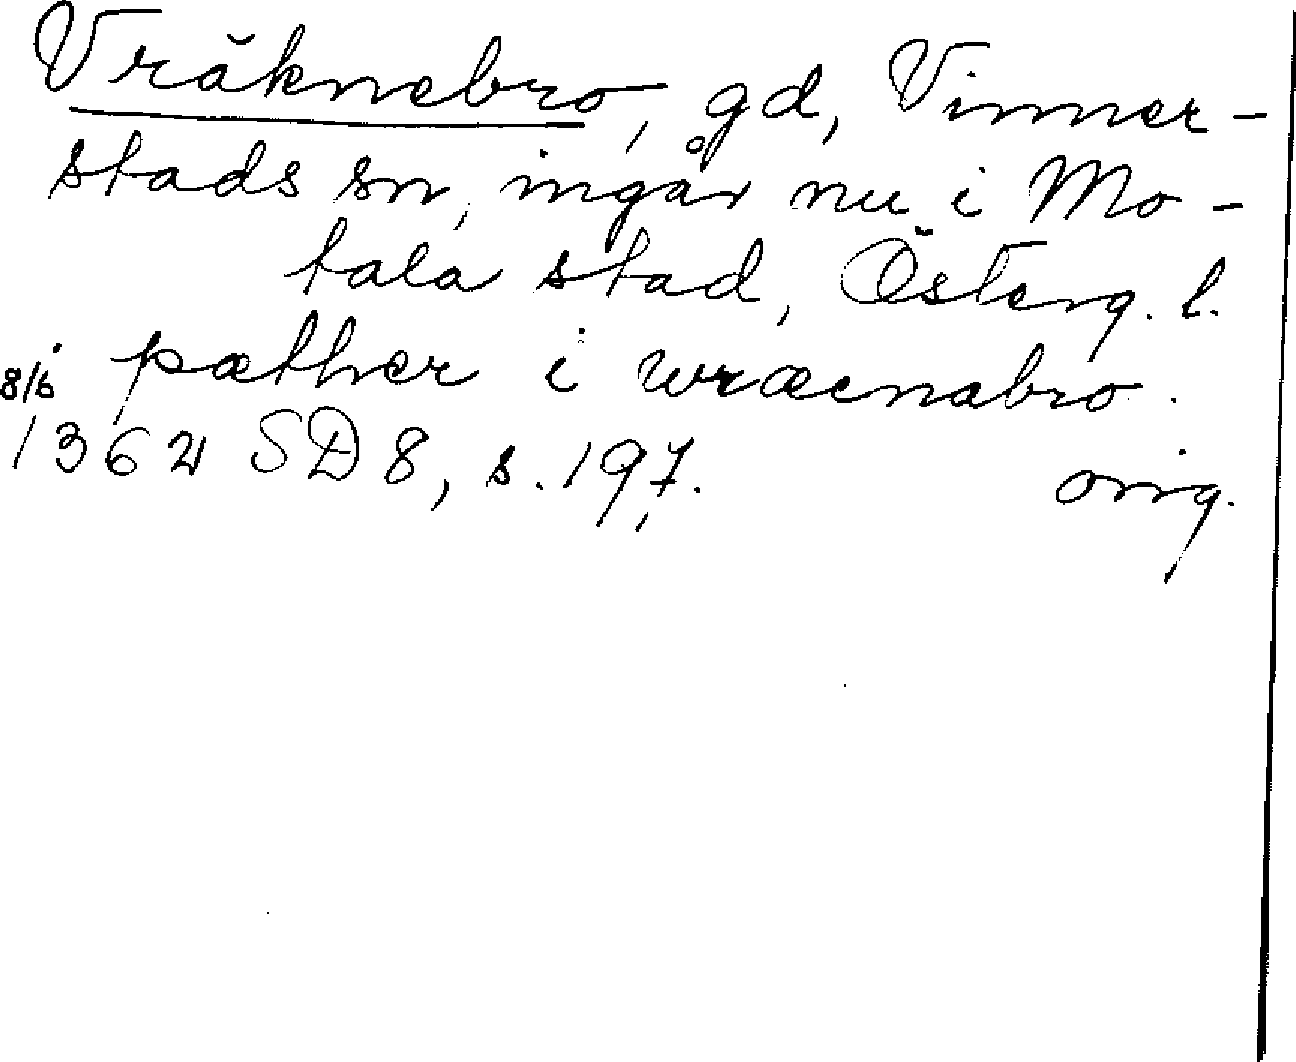 Vräknebro, gd, Vinner-
stads sn, ingår nu i Mo-
tala stad, Österg. l.
i pæther i wræcnabro.
8/6 1362 SD 8, s. 197.
orig.